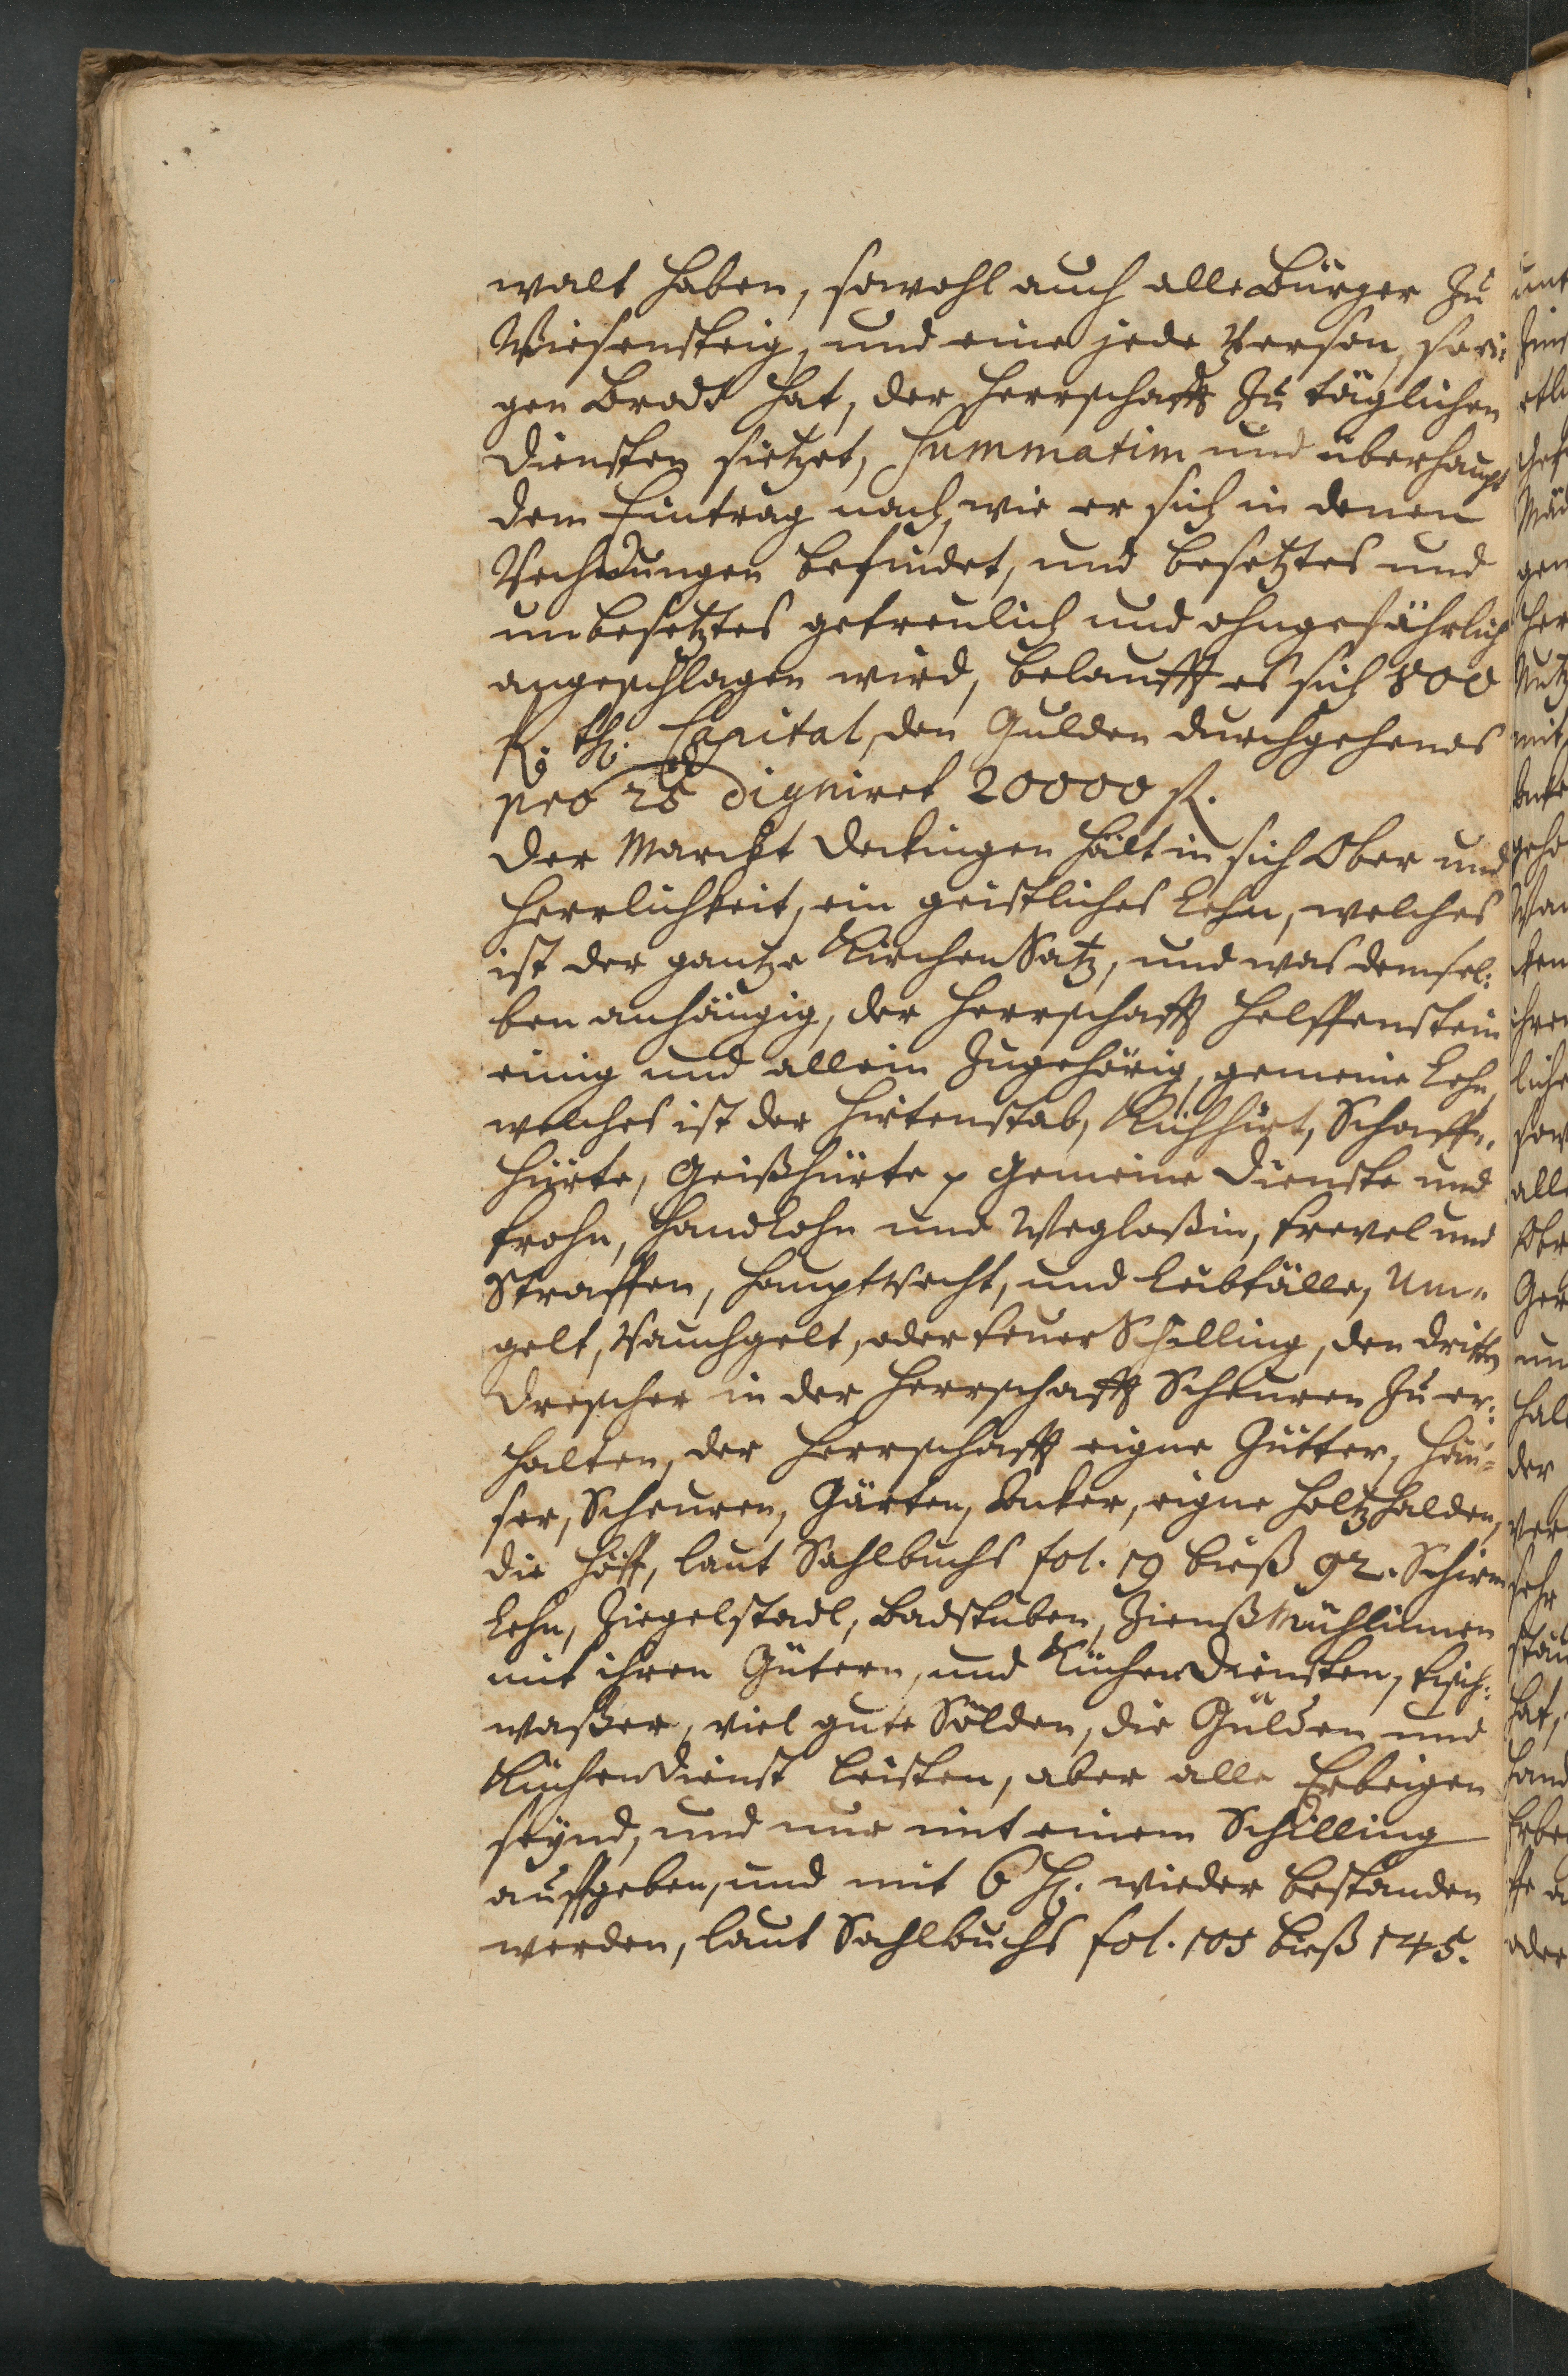 walt haben, sowohl auch alle Bürger zu
Wiesensteig, und eine jede Person, so ei-
gen Brodt hat, der Herrschafft zu täglichen
Diensten sietzet, Summatim und überhaupt
dem Eintrag nach, wie er sich in denen
Rechnungen befindet, und besetztes und
unbesetztes getreulich und ohngefährlich
angeschlagen wird, belaufft es sich 800
Capital, den Gulden durchgehends
pro 25 digniret 20000 fl.
Der Marckt Deckingen hält in sich Ober und
Herrlichkeit, ein geistliches Lehn, welches
ist der gantze Kirchen Satz, und was demsel-
ben anhängig, der Herrschafft Helffenstein
einig und allein zugehörig, gemeine Lehn,
welches ist der Hirtenstab, Kühhirt, Schaff-
hürte, Geißhürte p Gemeine Dienste und
Frohn, Handlohn und Weglaßin, Frevel und
Straffen, Hauptrecht, und Leibfälle, Um-
gelt, Rauchgelt, oder Feuer Schilling, den dritten
Drescher in der Herrschafft Scheuren zu er-
halten, der Herrschafft eigne Gütter, Häu-
ser, Scheuren, Gärten, Äcker, eigne Holtzhalden,
die Höff, laut Sahlbuchs fol. 19 bieß 92. Schirm
Lehn, Ziegelstadl, Badstuben, Zienß Mühlinnen
mit ihren Gütern, und Küchen Diensten, Fisch-
waßer, viel gute Sölden, die Gülden und
Küchendienst leisten, aber alle Erbeigen
seynd, und nur mit einem Schilling
auffgeben, und mit 6 H. wieder bestanden
werden, laut Sahlbuchs fol. 105 bieß 145.